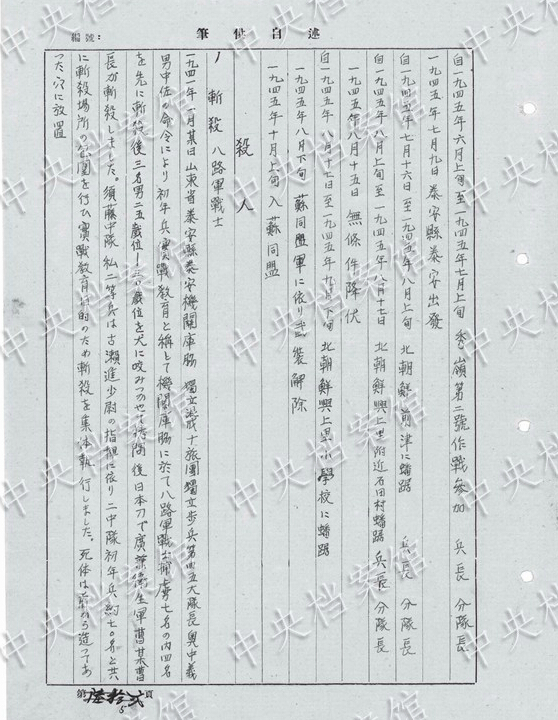 述自供筆
編號：
自一九四五年六月上旬至一九四五年七月上旬 秀嶺第二號作戰参加 兵長 分隊長
一九四五年七月九日泰安縣泰安出發
自一九四五年七月十六日至一九四五年八月上旬 北朝鮮 前津に蟠踞 兵長 分隊長
自一九四五年八月上旬至一九四五年八月十七日 北朝鮮興上里附近石田村蟠踞 兵長 分隊長
一九四五年八月十五日 無條件降伏
自一九四五年八月十七日至一九四五年八月下旬 北朝鮮興上里小學校に蟠踞
一九四五年八月下旬 蘇同盟軍に依り武装解除
一九四五年十月上旬 入蘇同盟
殺人
1 斬殺 八路軍戰士
一九四一年 月某日山東省泰安縣泰安機關庫脇 獨立混成十旅團獨立歩兵第四五大隊長奥中義
男中佐の命令により初年兵實戰教育と稱して機關庫脇に於て八路軍戰士俘虜七名の内四名
を先に斬殺後三名男二五歳位—三〇歳位を犬に咬みつかせて 後日本刀で廣 衛生軍曹某曹
長が斬殺しました。須藤中隊 私二等兵は古瀬進少尉の指揮に依り二中隊初年兵約七〇名と共
に斬殺場所の包圍を行ひ實戰教育目的のため斬殺を集体執行しました。死体は 造ってあ
った穴に放置
第陸拾弐頁
5
中央档案馆